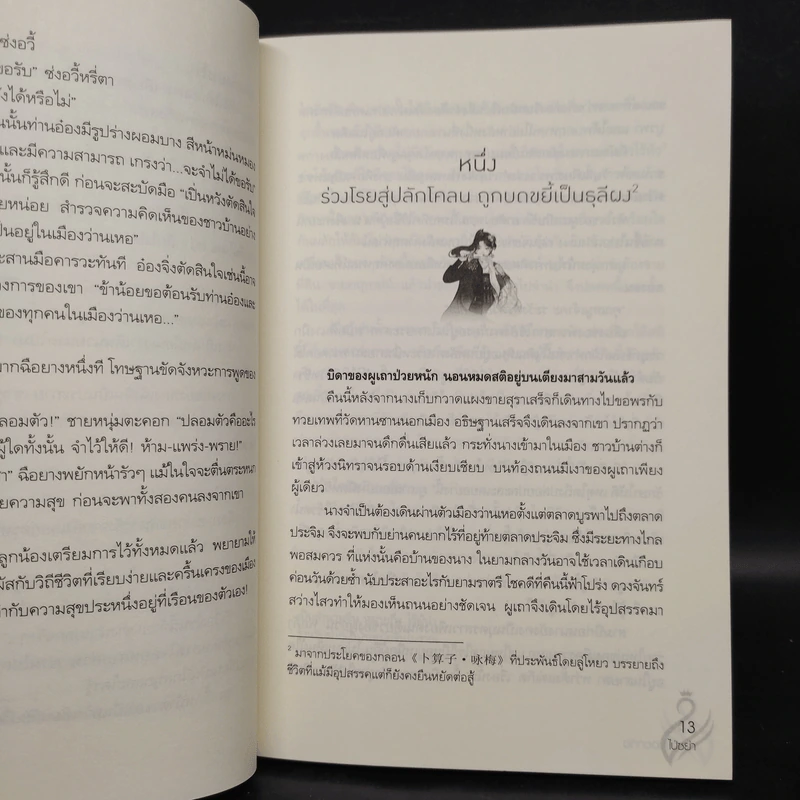 ซ่งอวี้
ขอรับ” ซ่งอวี้หรี่ตา
ังได้หรือไม่”
นนั้นท่านอ๋องมีรูปร่างผอมบาง สีหน้าหม่นหมอง
และมีความสามารถ เกรงว่า...จะจำไม่ได้ขอรับ”
นั้นก็รู้สึกดี ก่อนจะสะบัดมือ “เปิ่นหวังตัดสินใจ
ยหน่อย สำรวจความคิดเห็นของชาวบ้านอย่าง
ป็นอยู่ในเมืองว่านเหอ”
ะสานมือคารวะทันที อ๋องจิ่งตัดสินใจเช่นนี้อาจ
งการของเขา “ข้าน้อยขอต้อนรับท่านอ๋องและ
ของทุกคนในเมืองว่านเหอ...”
มากฉืออย่างหนึ่งที โทษฐานขัดจังหวะการพูดของ
ลอมตัว!” ชายหนุ่มตะคอก “ปลอมตัวคืออะไร
ผู้ใดทั้งนั้น จำไว้ให้ดี! ห้าม-แพร่ง-พราย!”
า” ฉืออย่างพยักหน้ารัวๆ แม้ในใจจะตื่นตระหนก
ยความสุข ก่อนจะพาทั้งสองคนลงจากเขา
ลูกน้องเตรียมการไว้ทั้งหมดแล้ว พยายามให้
มัสกับวิถีชีวิตที่เรียบง่ายและครื้นเครงของเมือง
ากับความสุขประหนึ่งอยู่ที่เรือนของตัวเอง!
หนึ่ง
ร่วงโรยสู่ปลักโคลน ถูกบดขยี้เป็นธุลีผง²
บิดาของผู้เถาป่วยหนัก นอนหมดสติอยู่บนเตียงมาสามวันแล้ว
คืนนี้หลังจากนางเก็บกวาดแผงขายสุราเสร็จก็เดินทางไปขอพรกับ
ทวยเทพที่วัดหานซานนอกเมือง อธิษฐานเสร็จจึงเดินลงจากเขา ปรากฏว่า
เวลาล่วงเลยมาจนดึกดื่นเสียแล้ว กระทั่งนางเข้ามาในเมือง ชาวบ้านต่างก็
เข้าสู่ห้วงนิทราจนรอบด้านเงียบเชียบ บนท้องถนนมีเงาของผู้เถาเพียง
ผู้เดียว
นางจำเป็นต้องเดินผ่านตัวเมืองว่านเหอตั้งแต่ตลาดบูรพาไปถึงตลาด
ประจิม จึงจะพบกับย่านคนยากไร้ที่อยู่ท้ายตลาดประจิม ซึ่งมีระยะทางไกล
พอสมควร ที่แห่งนั้นคือบ้านของนาง ในยามกลางวันอาจใช้เวลาเดินเกือบ
ค่อนวันด้วยซ้ำ นับประสาอะไรกับยามราตรี โชคดีที่คืนนี้ฟ้าโปร่ง ดวงจันทร์
สว่างไสวทำให้มองเห็นถนนอย่างชัดเจน ผู้เถาจึงเดินโดยไร้อุปสรรคมา
² มาจากประโยคของกลอน《卜算子·咏梅》ที่ประพันธ์โดยลู่โหยว บรรยายถึง
ชีวิตที่แม้มีอุปสรรคแต่ก็ยังคงยืนหยัดต่อสู้
13
ไป๋ชย่า